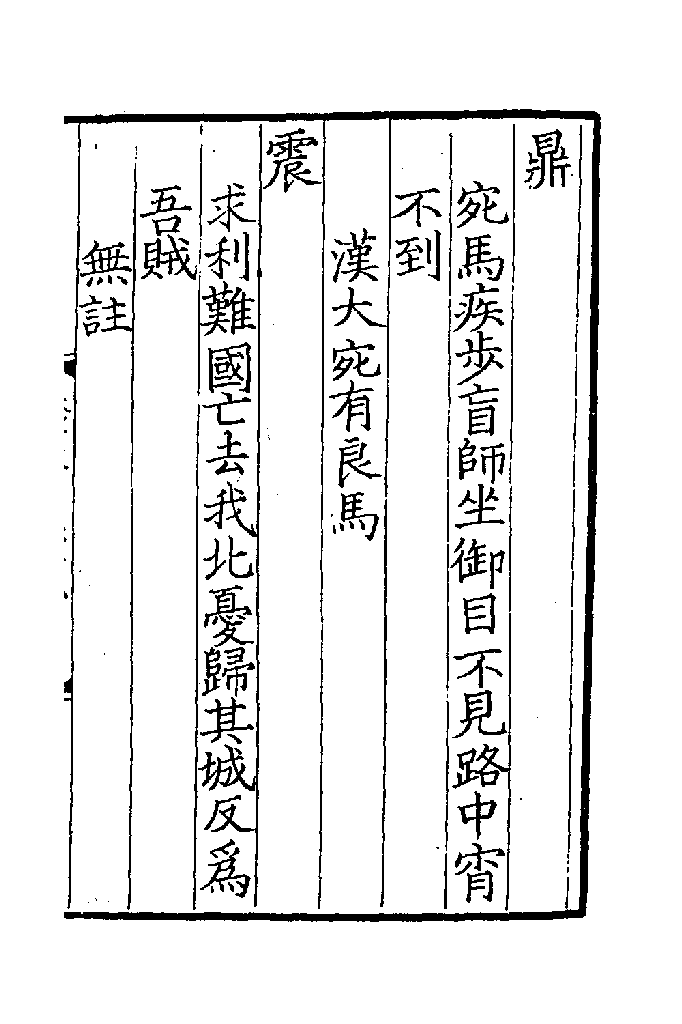 鼎
宛馬疾步盲師坐御目不見路中宵
不到
漢大宛有良馬
震
求利難國亡去我北憂歸其城反為
吾賊
無註